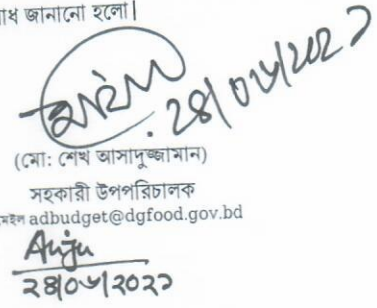 াধ জানানো হলো|
২৪|০৬|২০২১
(মো: শেখ আসাদুজ্জামান)
সহকারী উপপরিচালক
মেইল adbudget@dgfood.gov.bd
Anju
২৪|০৬|২০২১